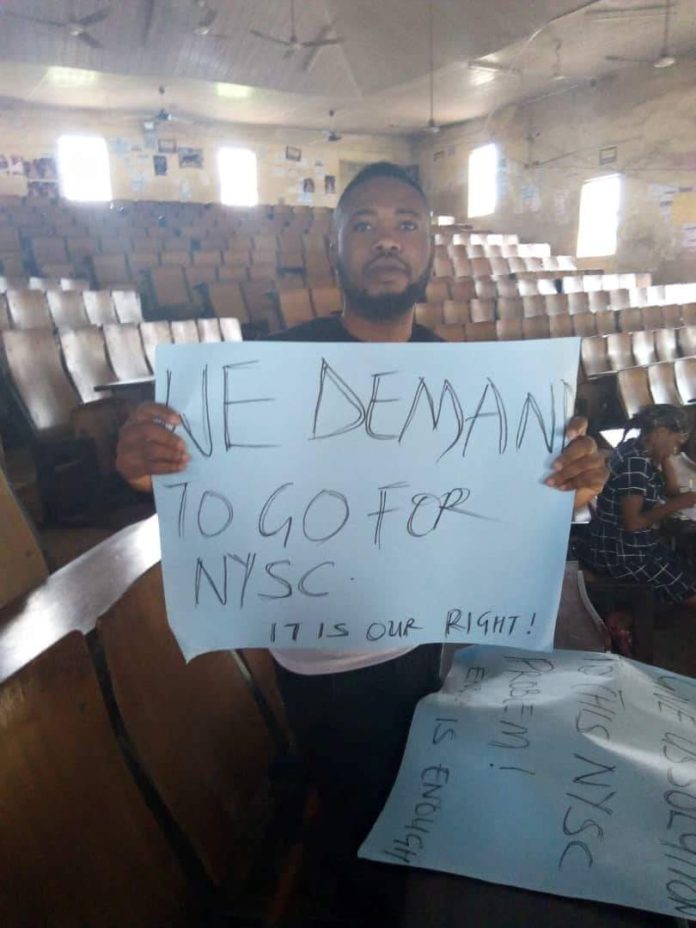 WE DEMAND
TO GO FOR
NYSC.
IT IS OUR RIGHT!
US SOLUTION
TO THIS NYSC
PROBLEM!
IS ENOUGH